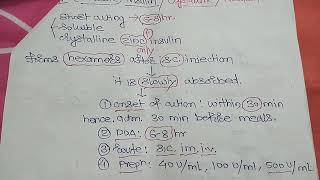 insulin
Short acting → 6-8 hr.
Soluble
Crystalline zinc insulin
only
forms hexamers after s.c injection
it is slowly absorbed.
① onset of action: within 30 min
hence, adm. 30 min before meals.
② DOA: 6-8 hr
③ Route: s/c, im, iv.
④ Prepn: 40 U/mL, 100 U/mL, 500 U/mL